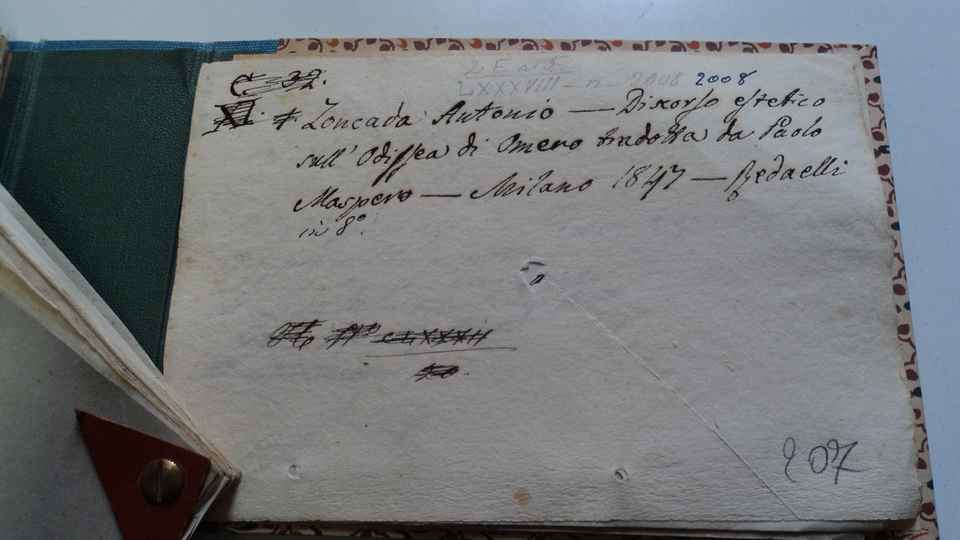 C 32.
LXXXVIII - n. 2008 2008
XI. # Zoncada Antonio — Discorso estetico
sull' Odissea di Omero tradotta da Paolo
Maspero — Milano 1847 — Redaelli
in 8°.
CLXXXII
207